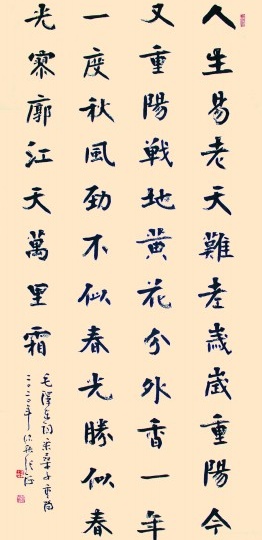 人生易老天難老歲歲重陽今
又重陽戰地黃花分外香一年
一度秋風勁不似春光勝似春
光寥廓江天萬里霜
毛澤東詞采桑子重陽
二〇二〇年